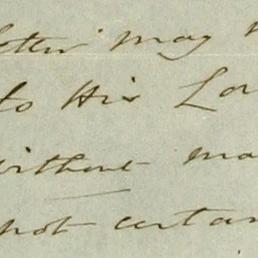 etter may
to His Lo
without ma
not certan